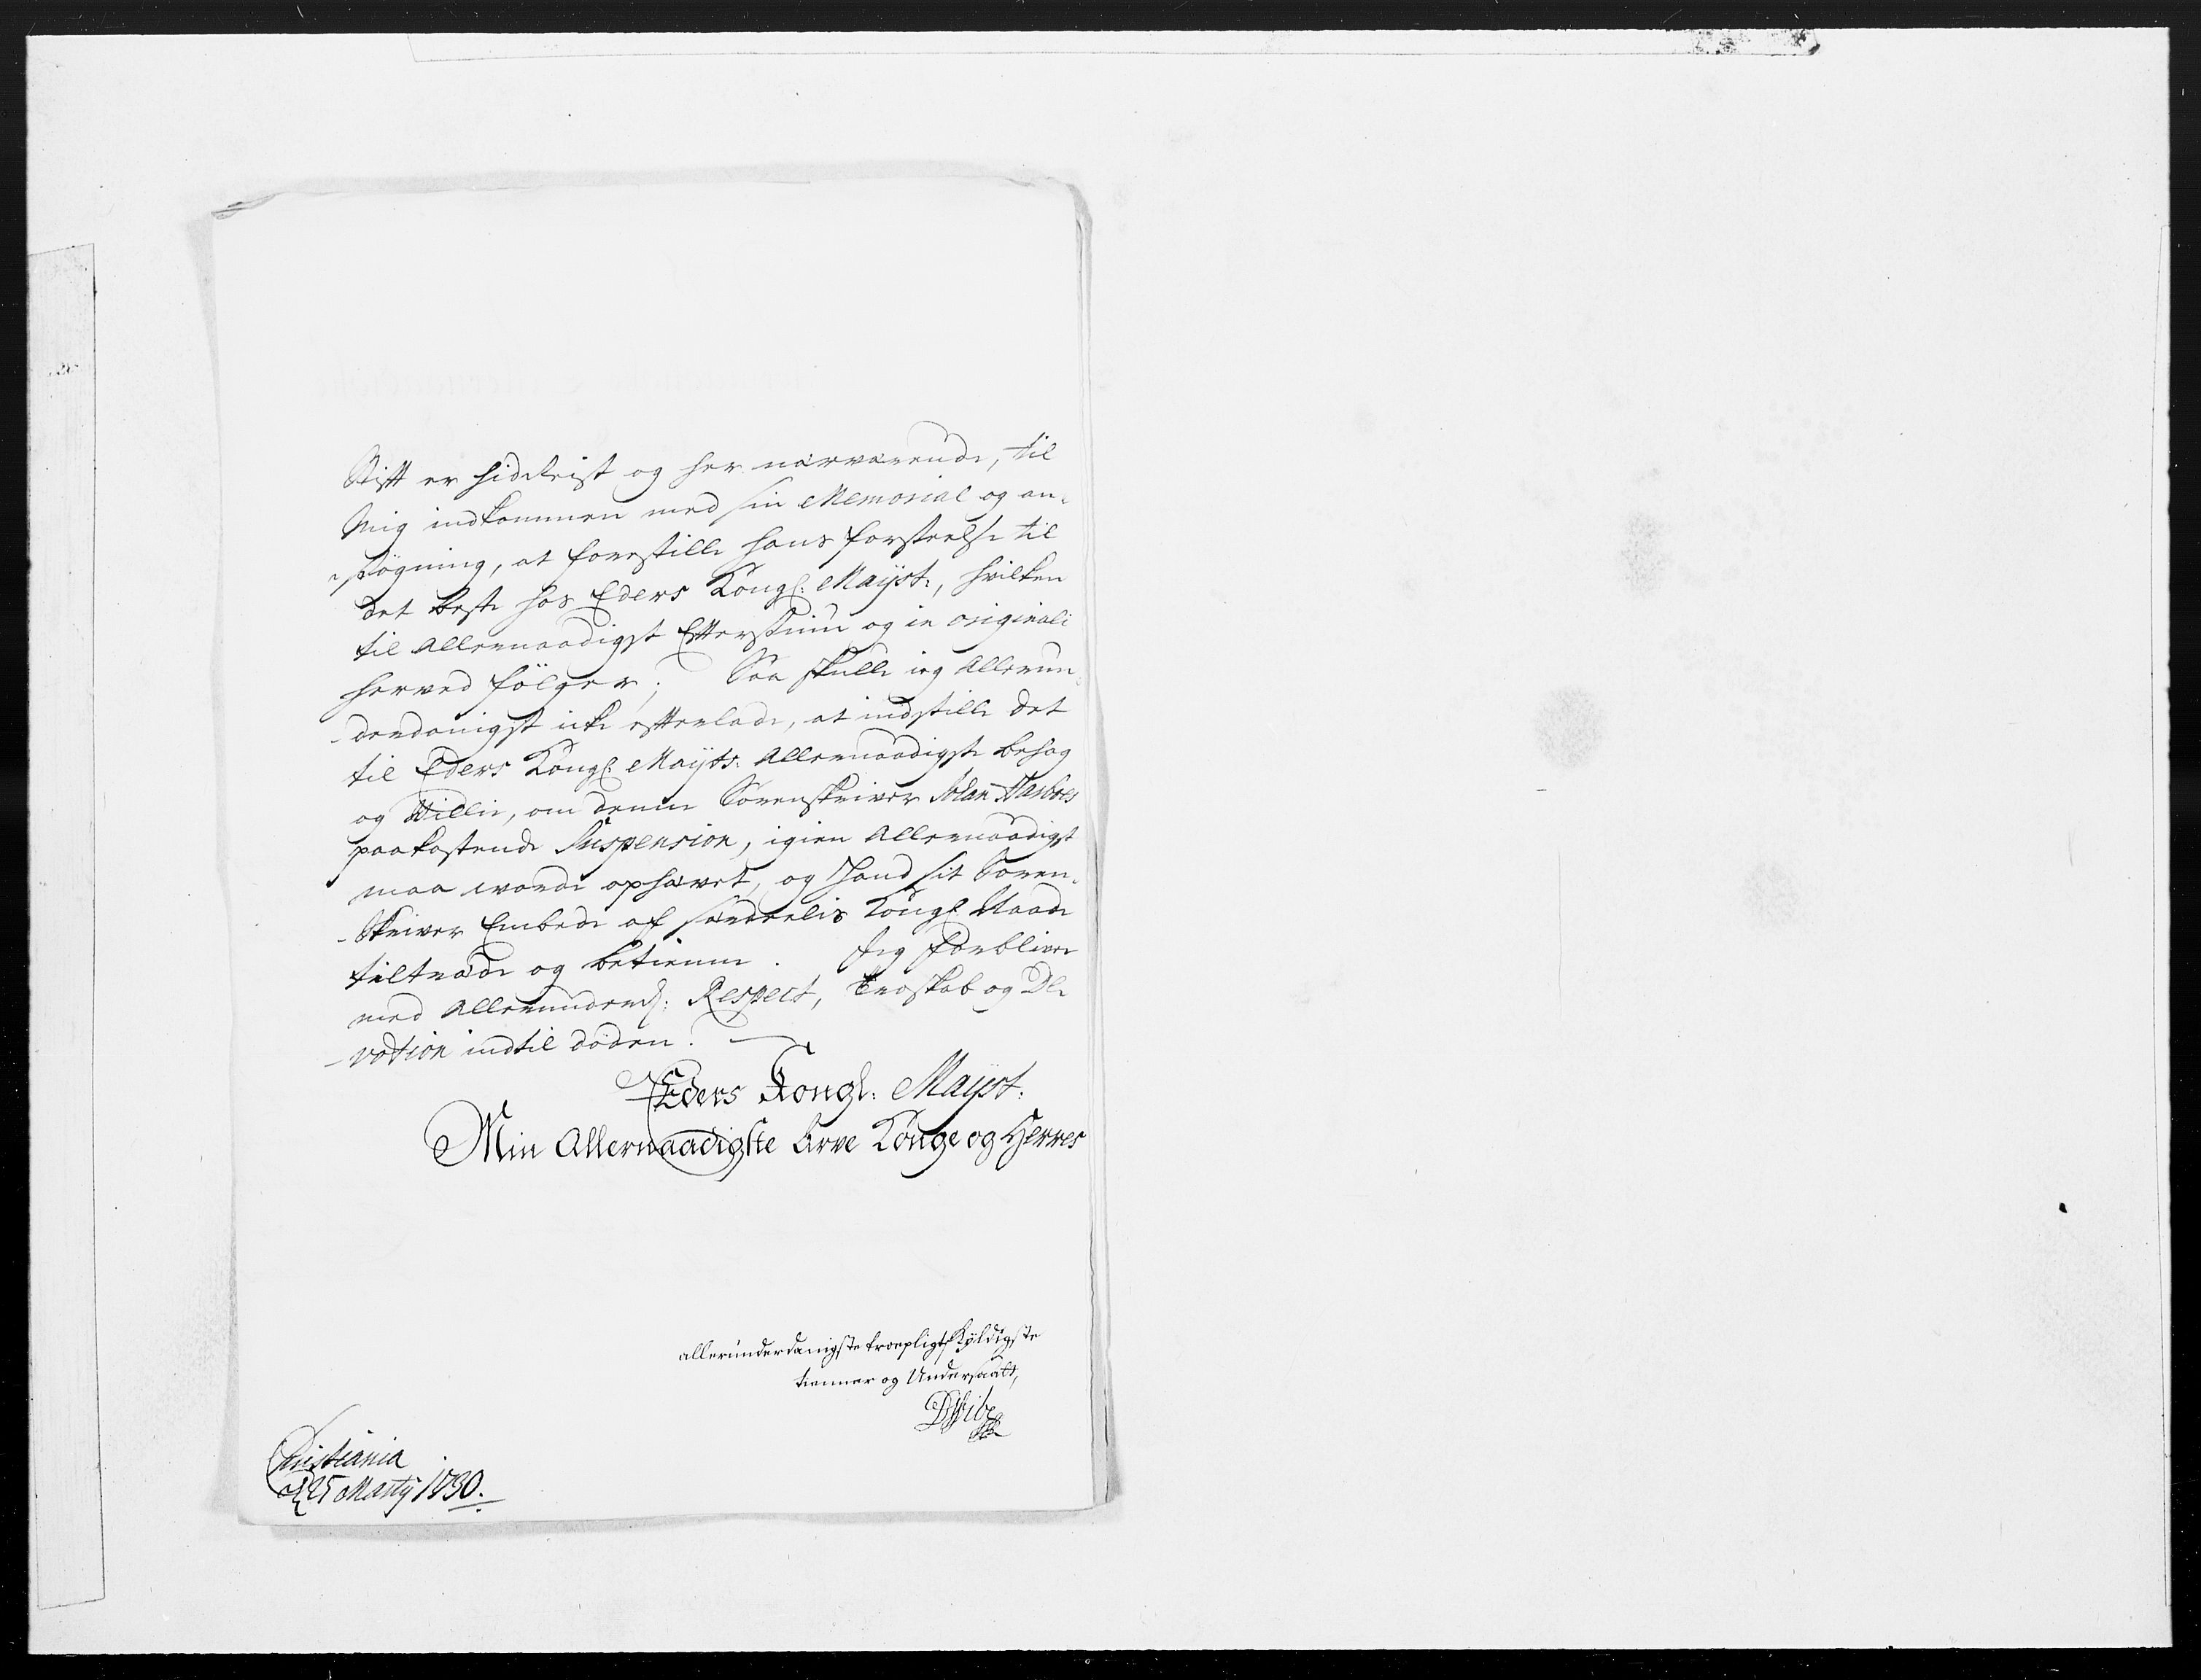 Stift er hidreist og her nærværende, til
Mig indkommen med sin Memorial og an-
-søgning, at forestille hans forseelse til
det beste hos Eders Kongl: Mayst:, hvilken
til Allernaadigst Efttersiun og in originali
herved følger; Saa skulle ieg Allerun-
-derdanigst icke efterlade, at indstille det
til Eders Kongl: Mayts: Allernaadigste behag
og Villie, om denne Sorenskriver
paakastende Suspension, igien Allernaadigst
maa worde ophævet, og Hand sit Soren-
-Skriver Embede af særdeelis Kongl: Naade
tiltræde og betienne. Jeg forbliver
med Allerunderd: Respect, troskab og De-
-votion indtil døden.
Eders Kongl: Mayst:
Min Allernaadigste Arve Konge og Herres
allerunderdanigste troepligtskyldigste
tienner og Undersaatt,
DWibe
Christiania
d 25 Martij 1730.